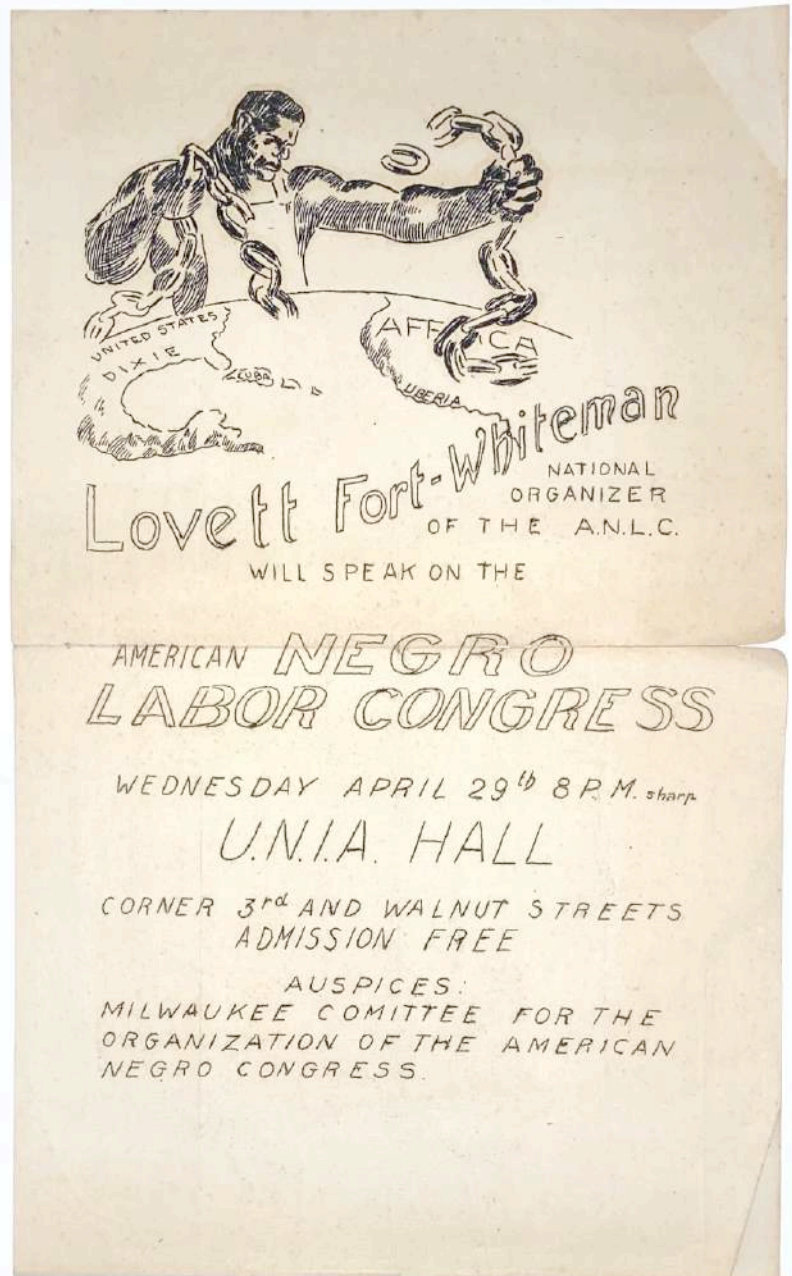 UNITED STATES
DIXIE
CUBA
AFRICA
LIBERIA
Lovett Fort-Whiteman
NATIONAL
ORGANIZER
OF THE A.N.L.C.
WILL SPEAK ON THE
AMERICAN NEGRO
LABOR CONGRESS
WEDNESDAY APRIL 29th 8 P.M. sharp
U.N.I.A. HALL
CORNER 3rd AND WALNUT STREETS
ADMISSION FREE
AUSPICES:
MILWAUKEE COMITTEE FOR THE
ORGANIZATION OF THE AMERICAN
NEGRO CONGRESS.